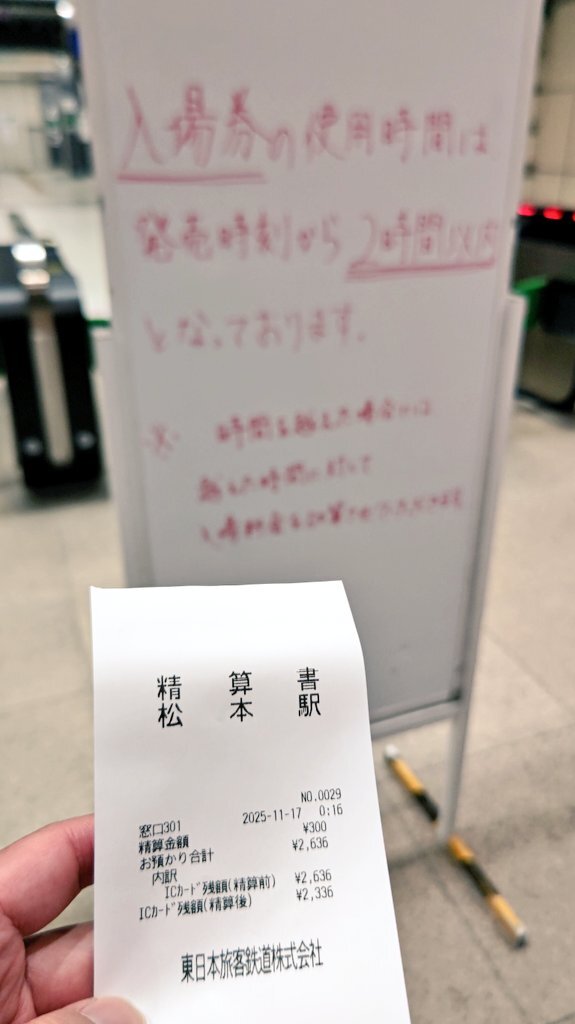 入場券の使用時間は
発売時刻から2時間以内
となっております。
※ 時間を越えた場合には
越えた時間に対して
入場料金を計算させていただきます
精算書
松本駅
NO.0029
窓口301 2025-11-17 0:16
精算金額 ¥300
お預かり合計 ¥2,636
内訳
ICカード残額(精算前) ¥2,636
ICカード残額(精算後) ¥2,336
東日本旅客鉄道株式会社